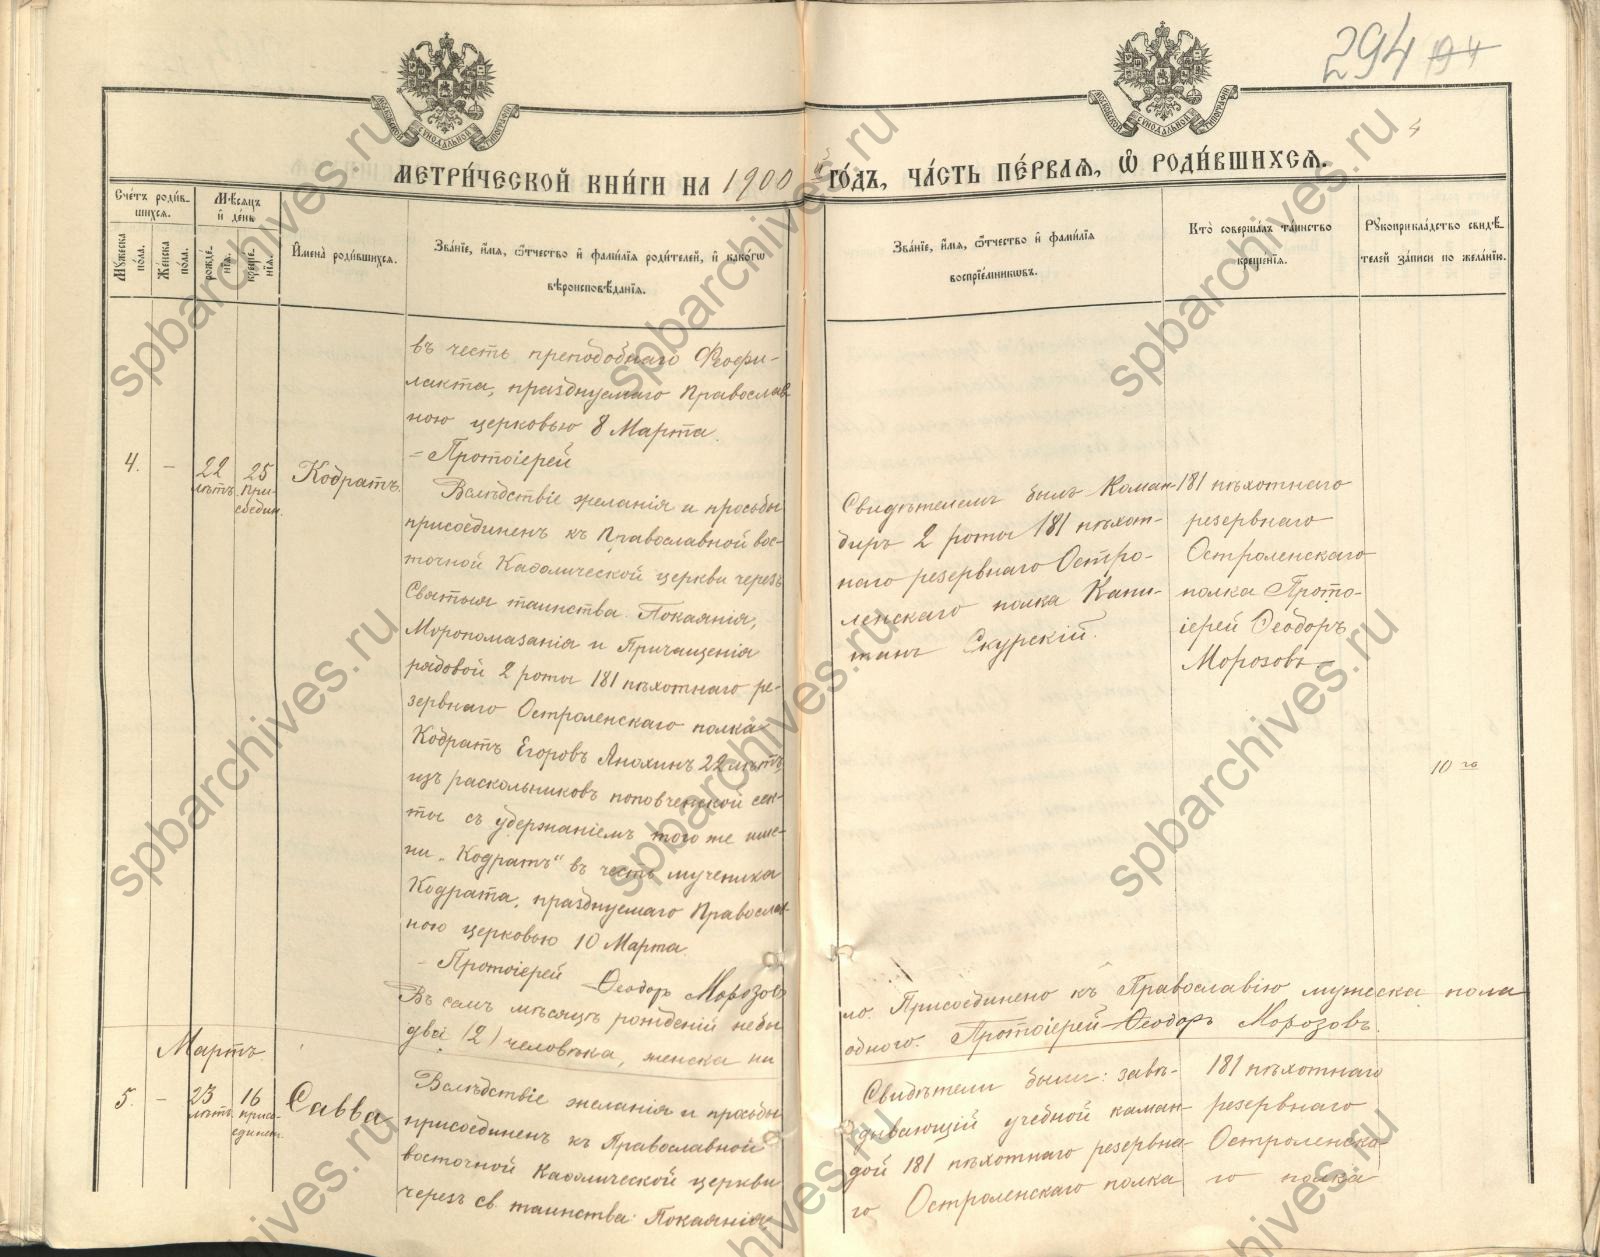 294 194
МОСКОВСКОЙ СѴНОДАЛЬНОЙ ТИПОГРАФІИ
МОСКОВСКОЙ СѴНОДАЛЬНОЙ ТИПОГРАФІИ
МЕТРИ́ЧЕСКОЙ КНИ́ГИ НА 1900 й ГО́ДЪ, ЧА́СТЬ ПЕ́РВАЯ, Ѡ РОДИ́ВШИХСЯ.
Сче́тъ роди́в-
шихся.
Мѣ́сяцъ
и де́нь
Му́жеска
по́ла.
Же́нска
по́ла.
рожде́-
нія.
креще́-
нія.
Имена̀ роди́вшихся.
Зва́ніе, и́мя, ѻ҆́тчество и фами́лія роди́телей, и како́гѡ
вѣроисповѣ́данія.
Зва́ніе, и́мя, ѻ҆́тчество и фами́лія
воспріе́мникѡвъ.
Кто̀ соверша́лъ та́инство
креще́нія.
Рукоприкла́дство свидѣ́-
телей за́писи по жела́нію.
въ честь преподобнаго Ѳеофи-
лакта, празднуемаго Православ-
ною церковью 8 Марта.
Протоіерей
4. — 22 лѣтъ 25 При-
соедин.
Кодратъ.
Вслѣдствіе желанія и просьбы
присоединенъ къ Православной вос-
точной Каѳолической церкви черезъ
Святыя таинства Покаянія,
Мѵропомазанія и Причащенія
рядовой 2 роты 181 пѣхотнаго ре-
зервнаго Остроленскаго полка
Кодратъ Егоровъ Анохинъ 22 лѣтъ,
изъ раскольниковъ поповченской сек-
ты съ удержаніемъ того же име-
ни „Кодратъ“ въ честь мученика
Кодрата, празднуемаго Православ-
ною церковью 10 Марта.
Протоіерей Ѳеодоръ Морозовъ
Свидѣтелемъ былъ Коман-
диръ 2 роты 181 пѣхот-
наго резервнаго Остро-
ленскаго полка Капи-
танъ Скурскій.
181 пѣхотнаго
резервнаго
Остроленскаго
полка Прото-
іерей Ѳеодоръ
Морозовъ
10 го
Въ семъ мѣсяцѣ рожденій небы-
ло. Присоединено къ Православію мужеска пола
два (2) человѣка, женска ни
одного. Протоіерей Ѳеодоръ Морозовъ.
Мартъ.
5. — 23 лѣтъ 16 присо-
единен.
Савва
Вслѣдствіе желанія и просьбы
присоединенъ къ Православной
восточной Каѳолической церкви
черезъ св. таинства: Покаянія
Свидѣтели были: завѣ-
дывающій учебной каман-
дой 181 пѣхотнаго резервна-
го Остроленскаго полка
181 пѣхотнаго
резервнаго
Остроленска-
го полка
spbarchives.ru
spbarchives.ru
spbarchives.ru
spbarchives.ru
spbarchives.ru
spbarchives.ru
spbarchives.ru
spbarchives.ru
spbarchives.ru